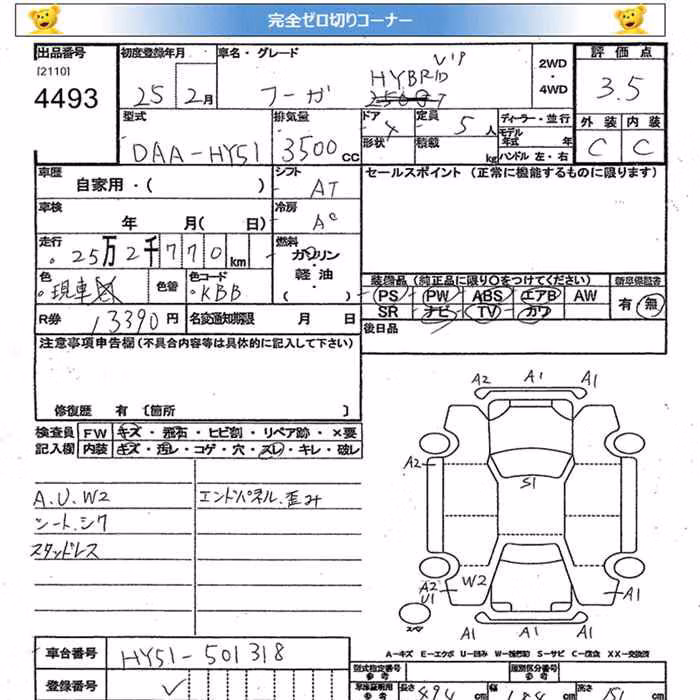 完全ゼロ切りコーナー
出品番号
[2110]
4493
初度登録年月
25 2月
車名・グレード
フーガ
HYBRID VIP
2WD
・
4WD
評価点
3.5
外装 内装
C C
型式
DAA-HY51
排気量
3500cc
ドア
4
形状
定員
5人
積載
kg
ディーラー・並行
モデル年式 年
ハンドル 左・右
車歴
自家用・( )
シフト
AT
セールスポイント (正常に機能するものに限ります)
車検
年 月( 日)
冷房
AC
走行
25万2千770km
燃料
ガソリン
・
軽油
・
( )
色
現車
色替
色コード
KBB
装備品 (純正品に限り○をつけてください)
PS PW ABS エアB AW
SR ナビ TV カワ
新車保証書
有・無
R券
13390円
名変通知期限 月 日
後日品
注意事項申告欄 (不具合内容等は具体的に記入して下さい)
修復歴 有 〔箇所 〕
検査員 FW キズ・飛石・ヒビ割・リペア跡・×要
記入欄 内装 キズ・汚レ・コゲ・穴・スレ・キレ・破レ
A.U.W2
シート.シワ
スタッドレス
エンドパネル.歪み
A2 A1 A1
A2
S1
W2
A2
U1
A1
スペア
A1 A1
A-キズ E-エクボ U-凹み W-補修跡 S-サビ C-腐食 XX-交換済
車台番号
HY51-501318
登録番号
型式指定番号
参考
類別区分番号
参考
長さ 494cm
幅 184cm
高さ 151cm